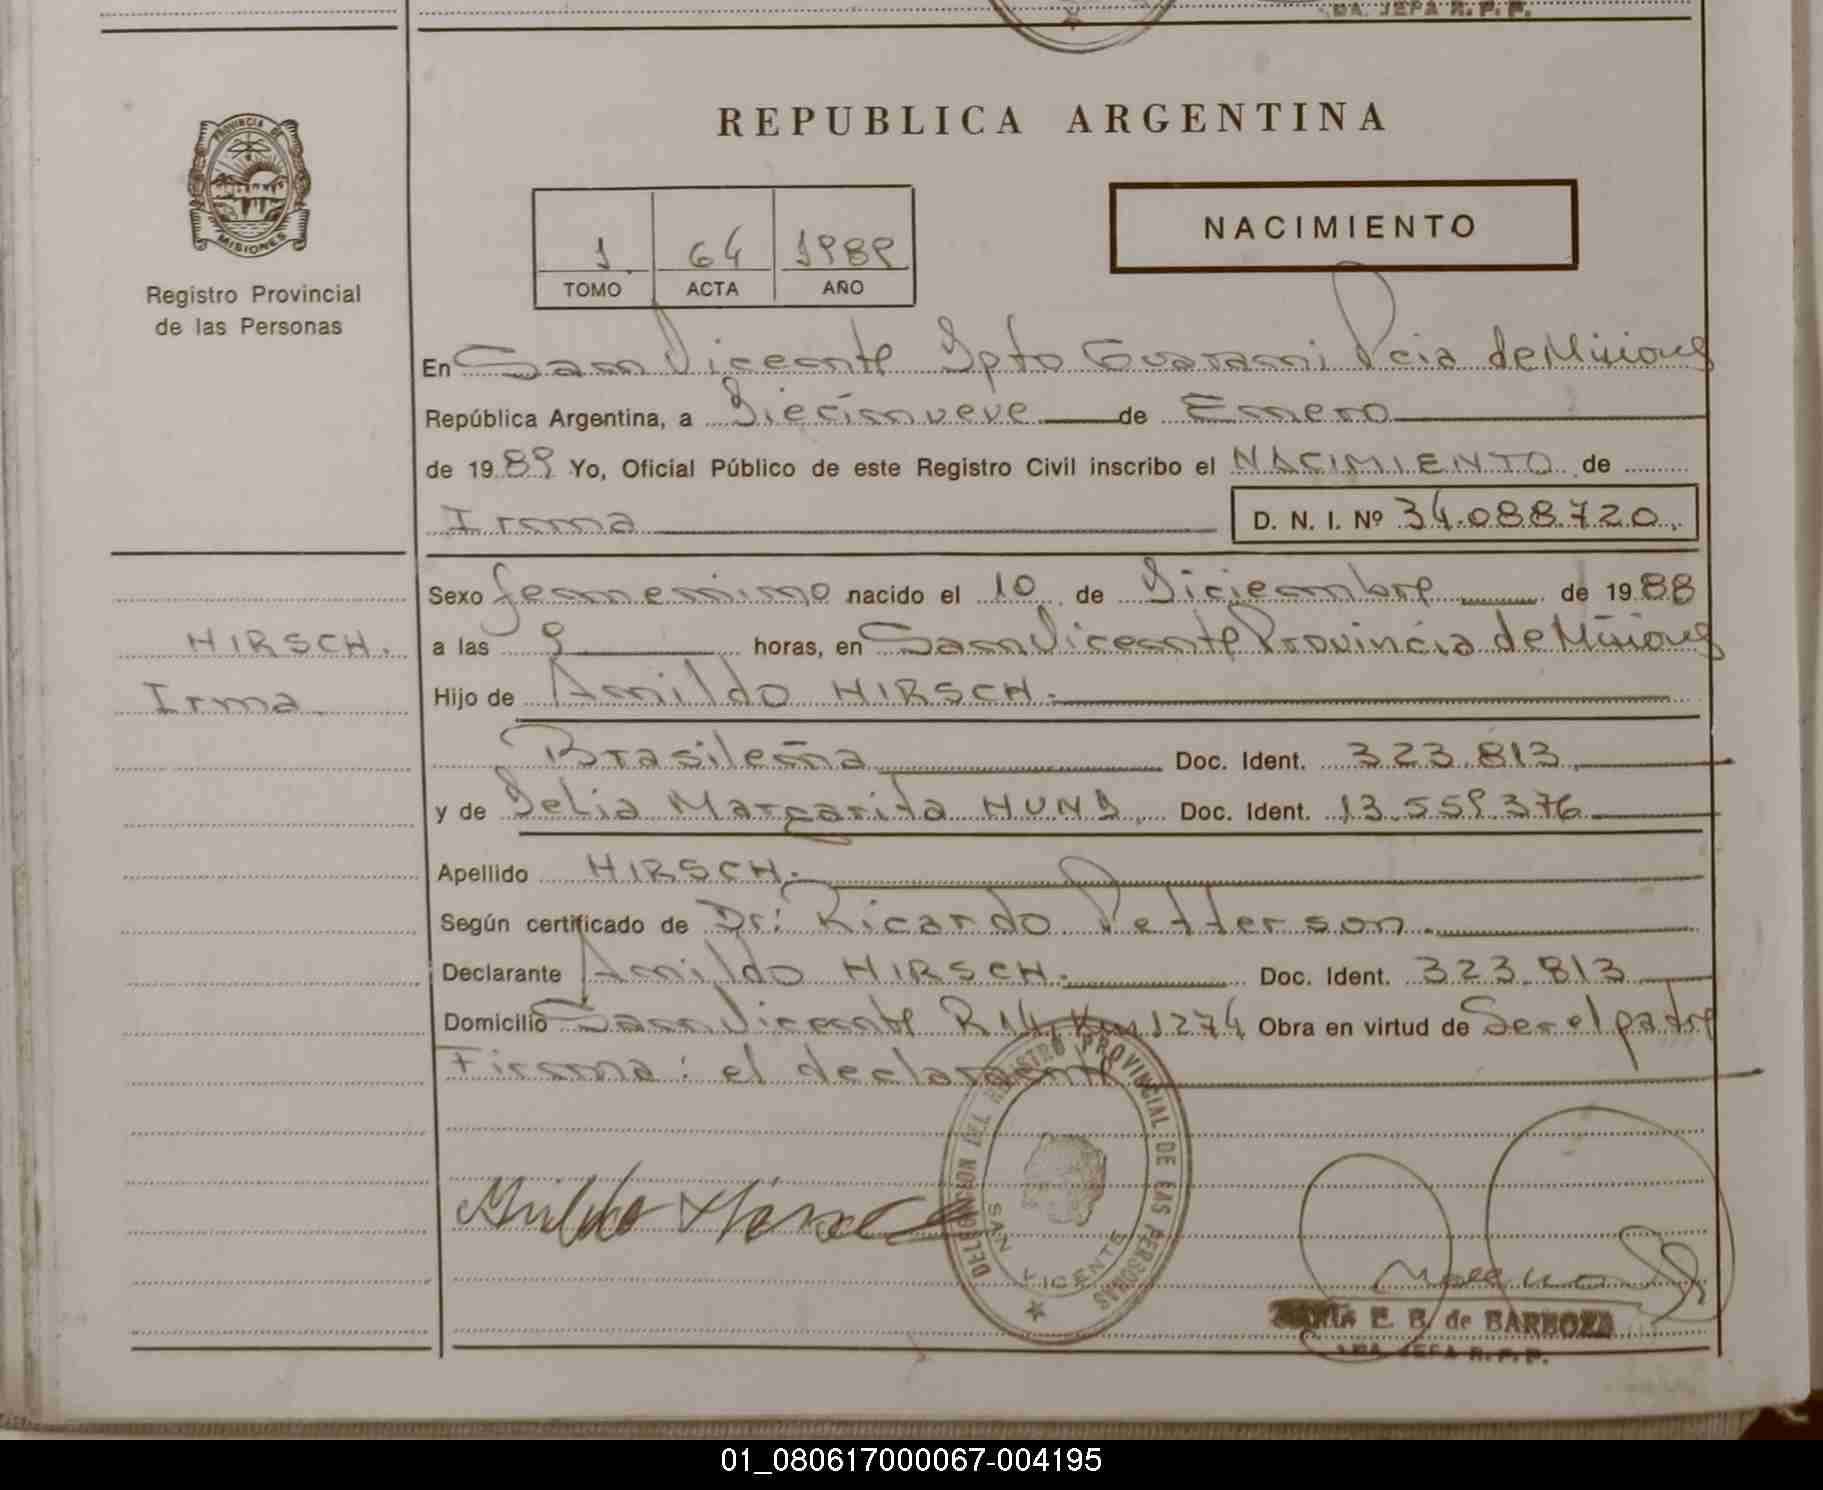 DA. JEFA R. P. P.
REPUBLICA ARGENTINA
PROVINCIA DE
MISIONES
Registro Provincial
de las Personas
NACIMIENTO
1 64 1989
TOMO ACTA AÑO
En San Vicente Dpto Guarani Pcia de Misiones
República Argentina, a Diecinueve de Enero
de 1989 Yo, Oficial Público de este Registro Civil inscribo el NACIMIENTO de
Irma D. N. I. Nº 34.088.720.
Sexo femenino nacido el 10 de Diciembre de 1988
HIRSCH.
Irma
a las 9 horas, en San Vicente Provincia de Misiones
Hijo de Arnildo HIRSCH.
Brasileña Doc. Ident. 323.813
y de Delia Margarita HUND Doc. Ident. 13.559.376
Apellido HIRSCH.
Según certificado de Dr: Ricardo Petterson.
Declarante Arnildo HIRSCH. Doc. Ident. 323.813
Domicilio San Vicente R.14, Km 1274 Obra en virtud de Ser el padre
Firma: el declarante
DELEGACION DEL REGISTRO PROVINCIAL DE LAS PERSONAS
SAN VICENTE
Arnildo Hirsch
E. B. de BARBOZA
DA. JEFA R. P. P.
01_080617000067-004195